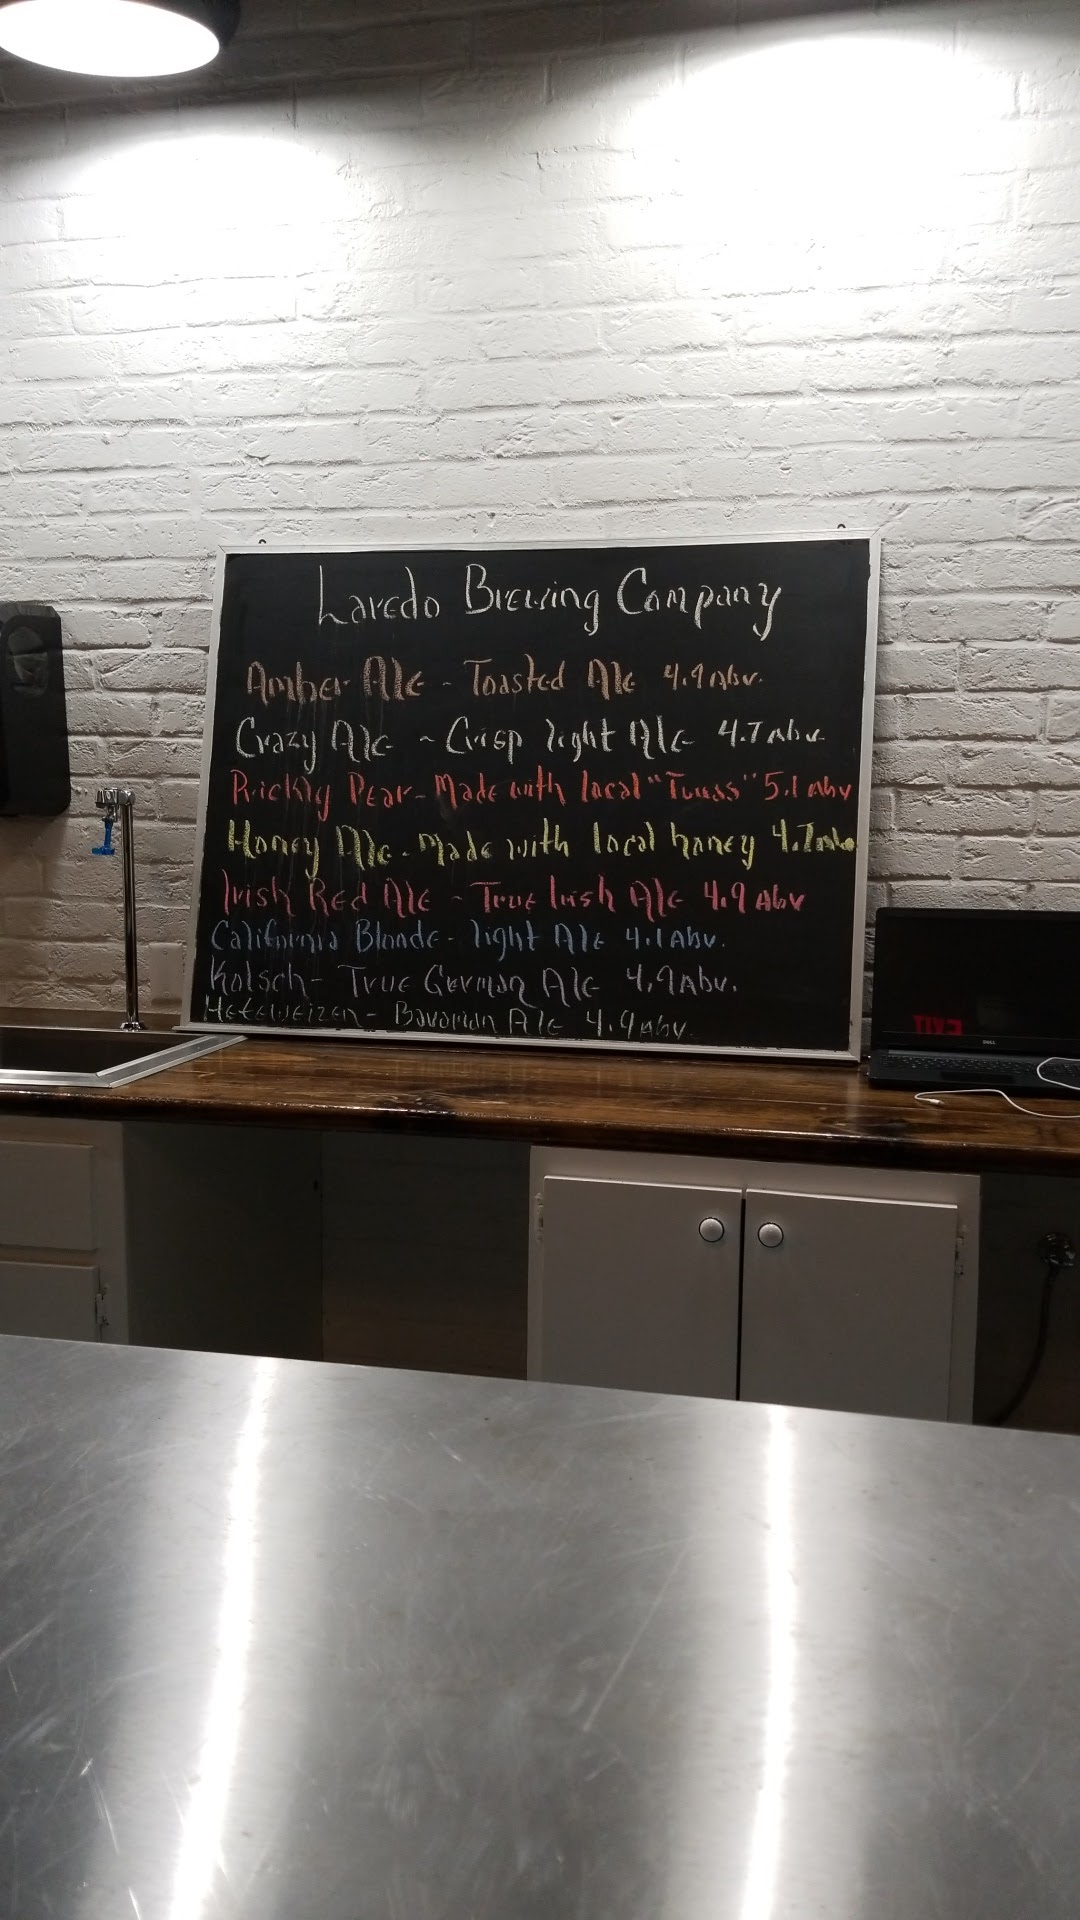 Laredo Brewing Company
Amber Ale - Toasted Ale 4.9 Abv.
Crazy Ale ~ Crisp light Ale 4.7 Abv.
Prickly Pear - Made with local "Tunas" 5.1 Abv
Honey Ale - Made with local honey 4.7 Abv
Irish Red Ale ~ True Irish Ale 4.9 Abv
California Blonde - light Ale 4.1 Abv.
Kolsch - True German Ale 4.9 Abv.
Hefeweizen - Bavarian Ale 4.9 Abv.
EXIT
DELL